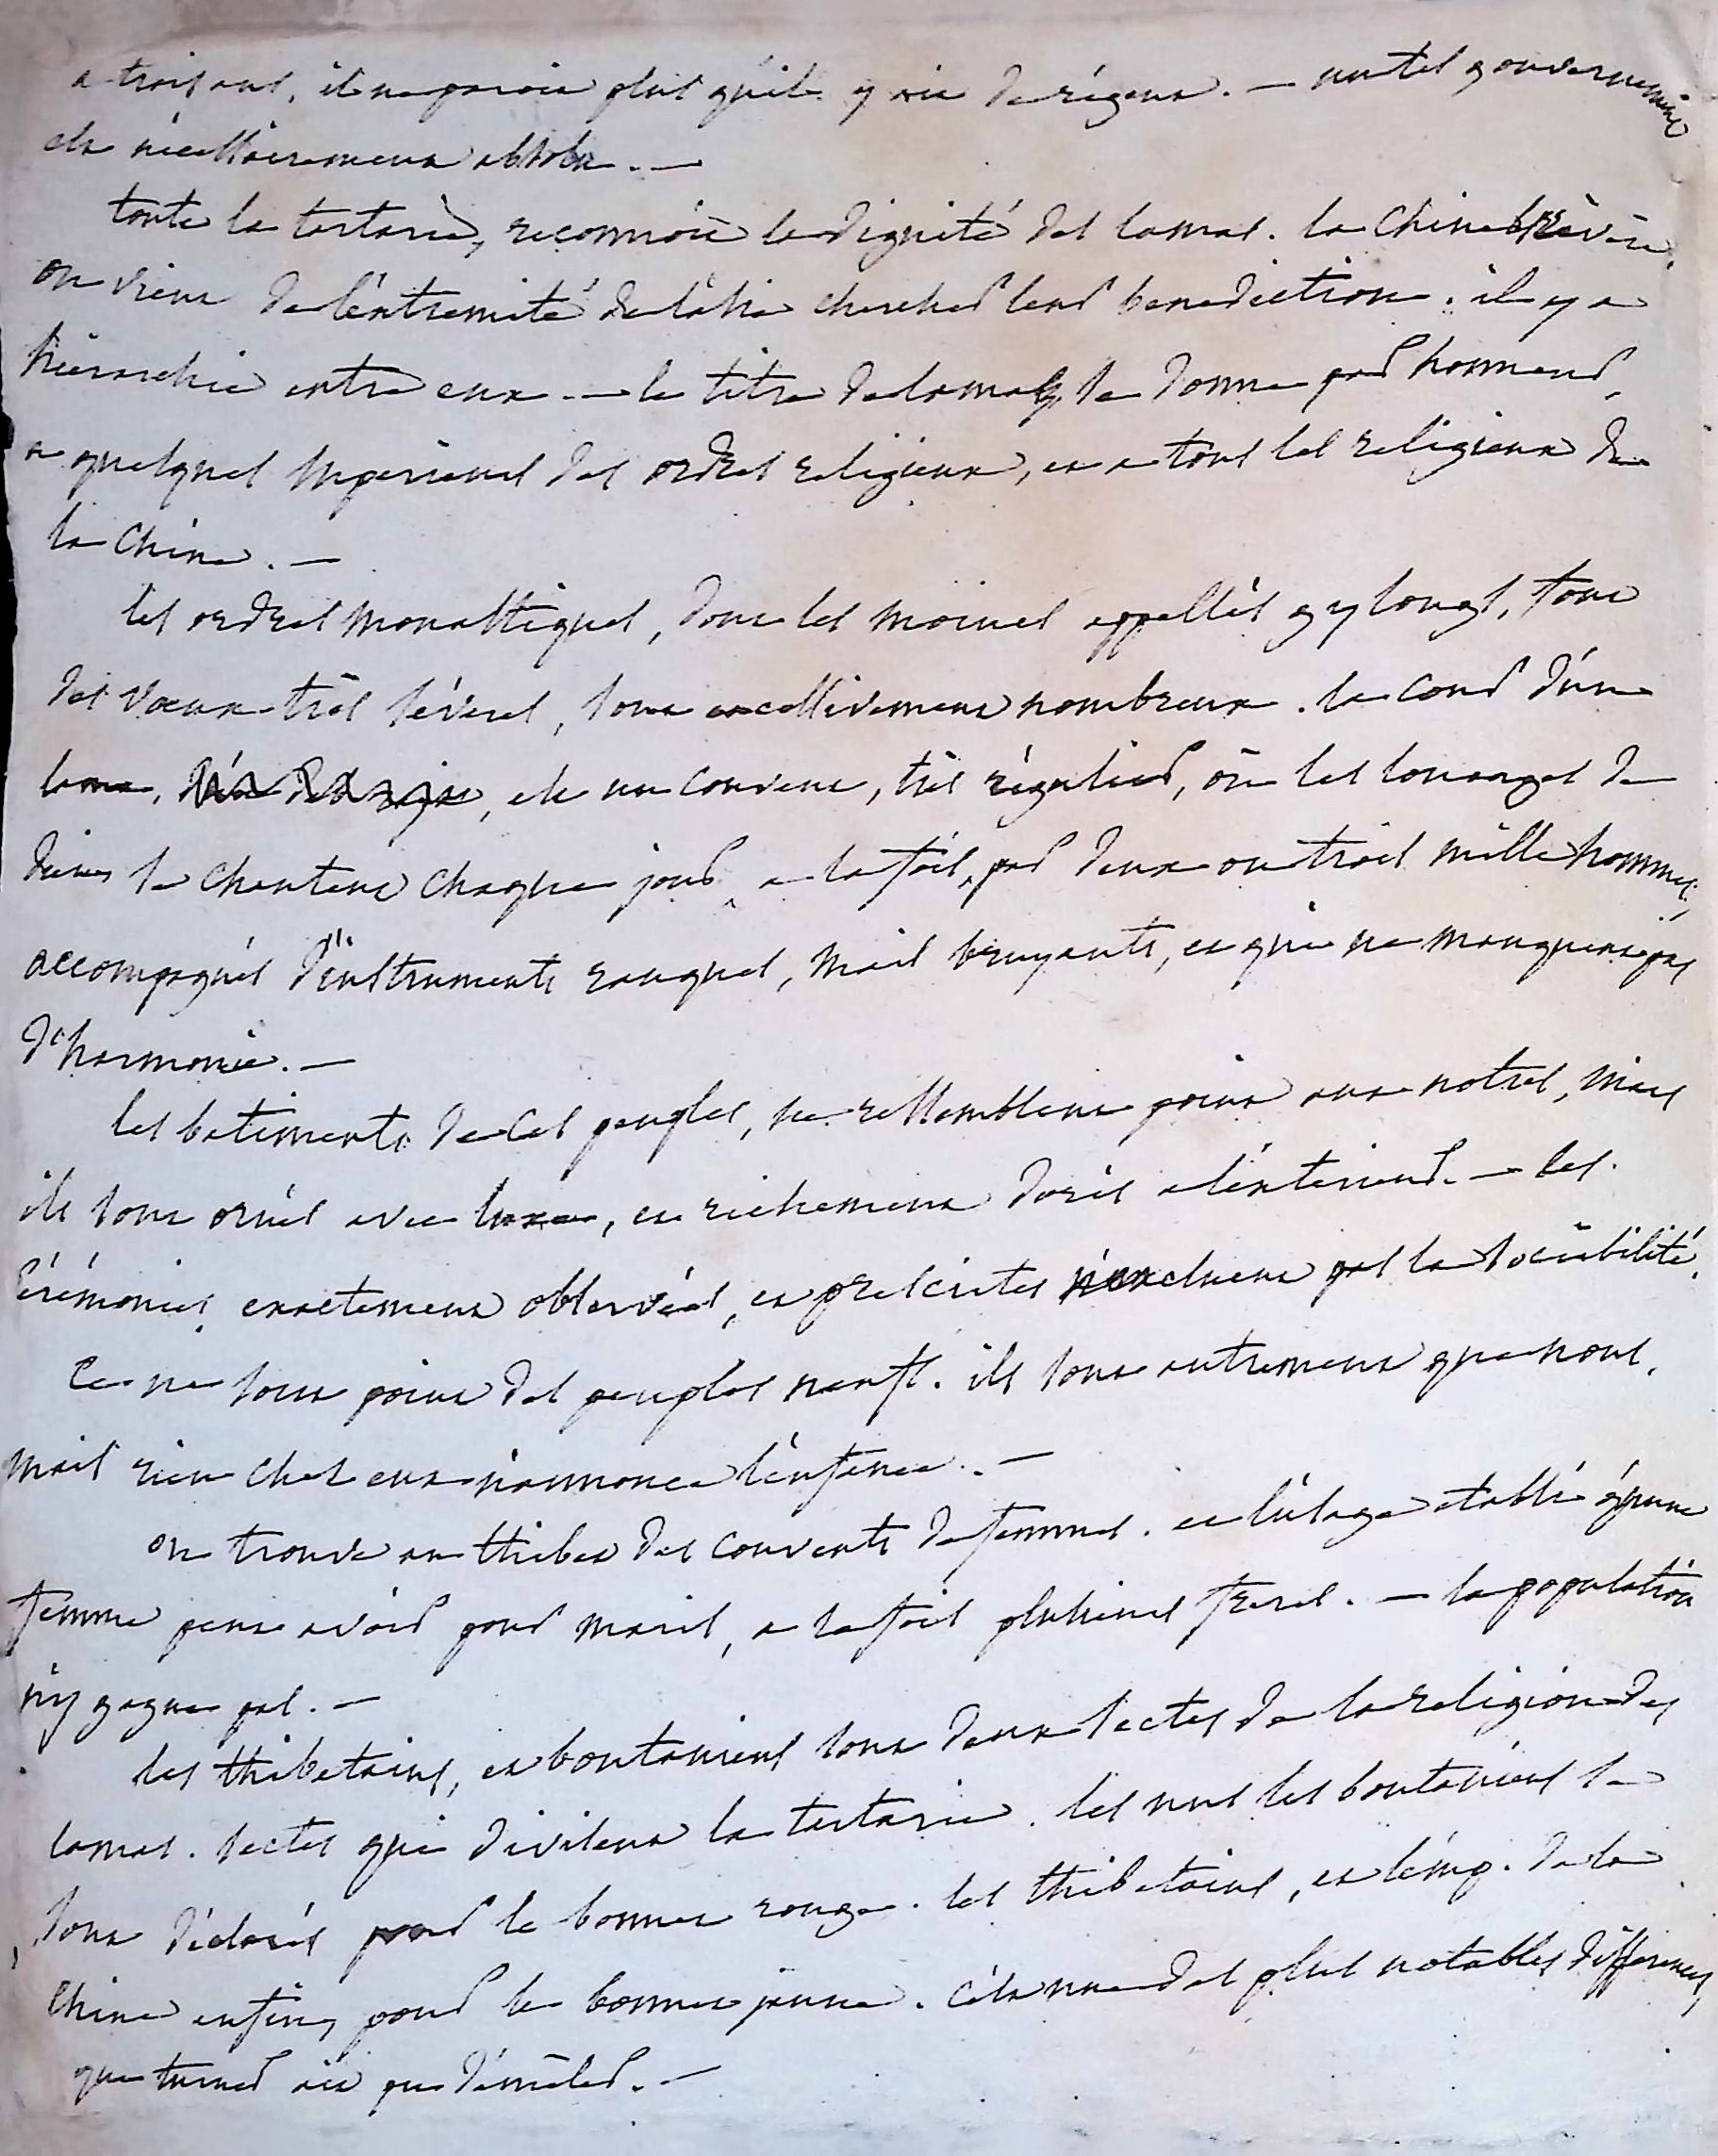 a trois ans, il ne paroit plus qu'il y ait de régent. — un tel gouvernement
est nécessairement absolu. —
toute la tartarie, reconnoit la dignité des lamas. la Chine les révère.
on vient de l'extremité de l'asie chercher leur benediction. il y a
hiérarchie entre eux. — le titre de lama, se donne par honneur,
a quelques superieurs des ordres religieux, et a tous les religieux de
la Chine. —
les ordres monastiques, dont les moines appellés gylongs, font
des vœux très sévères, sont excessivement nombreux. la cour d'un
lama, est un couvent, très régulier, où les louanges de
dieu se chantent chaque jour, a la fois, par deux ou trois mille hommes,
accompagnés d'instruments rauques, mais bruyants, et qui ne manquent pas
d'harmonie. —
les batiments de ces peuples, ne ressemblent point aux notres, mais
ils sont ornés avec luxe, et richement dorés a l'extérieur. — les
cérémonies exactement observées, et prescrites n'excluent pas la sociabilité.
Ce ne sont point des peuples neufs. ils sont autrement que nous,
mais rien chez eux n'annonce l'enfance. —
on trouve au thibet des couvents de femmes. et l'usage etabli qu'une
femme peut avoir pour maris, a la fois plusieurs freres. — la population
n'y gagne pas. —
les thibetains, et boutaniens sont deux sectes de la religion des
lamas. sectes qui divisent la tartarie. les uns les boutaniens se
sont déclarés pour le bonnet rouge. les thibetains, et l'emp. de la
Chine enfin, pour le bonnet jaune. c'est une des plus notables différences,
que turner ait pu démêler. —